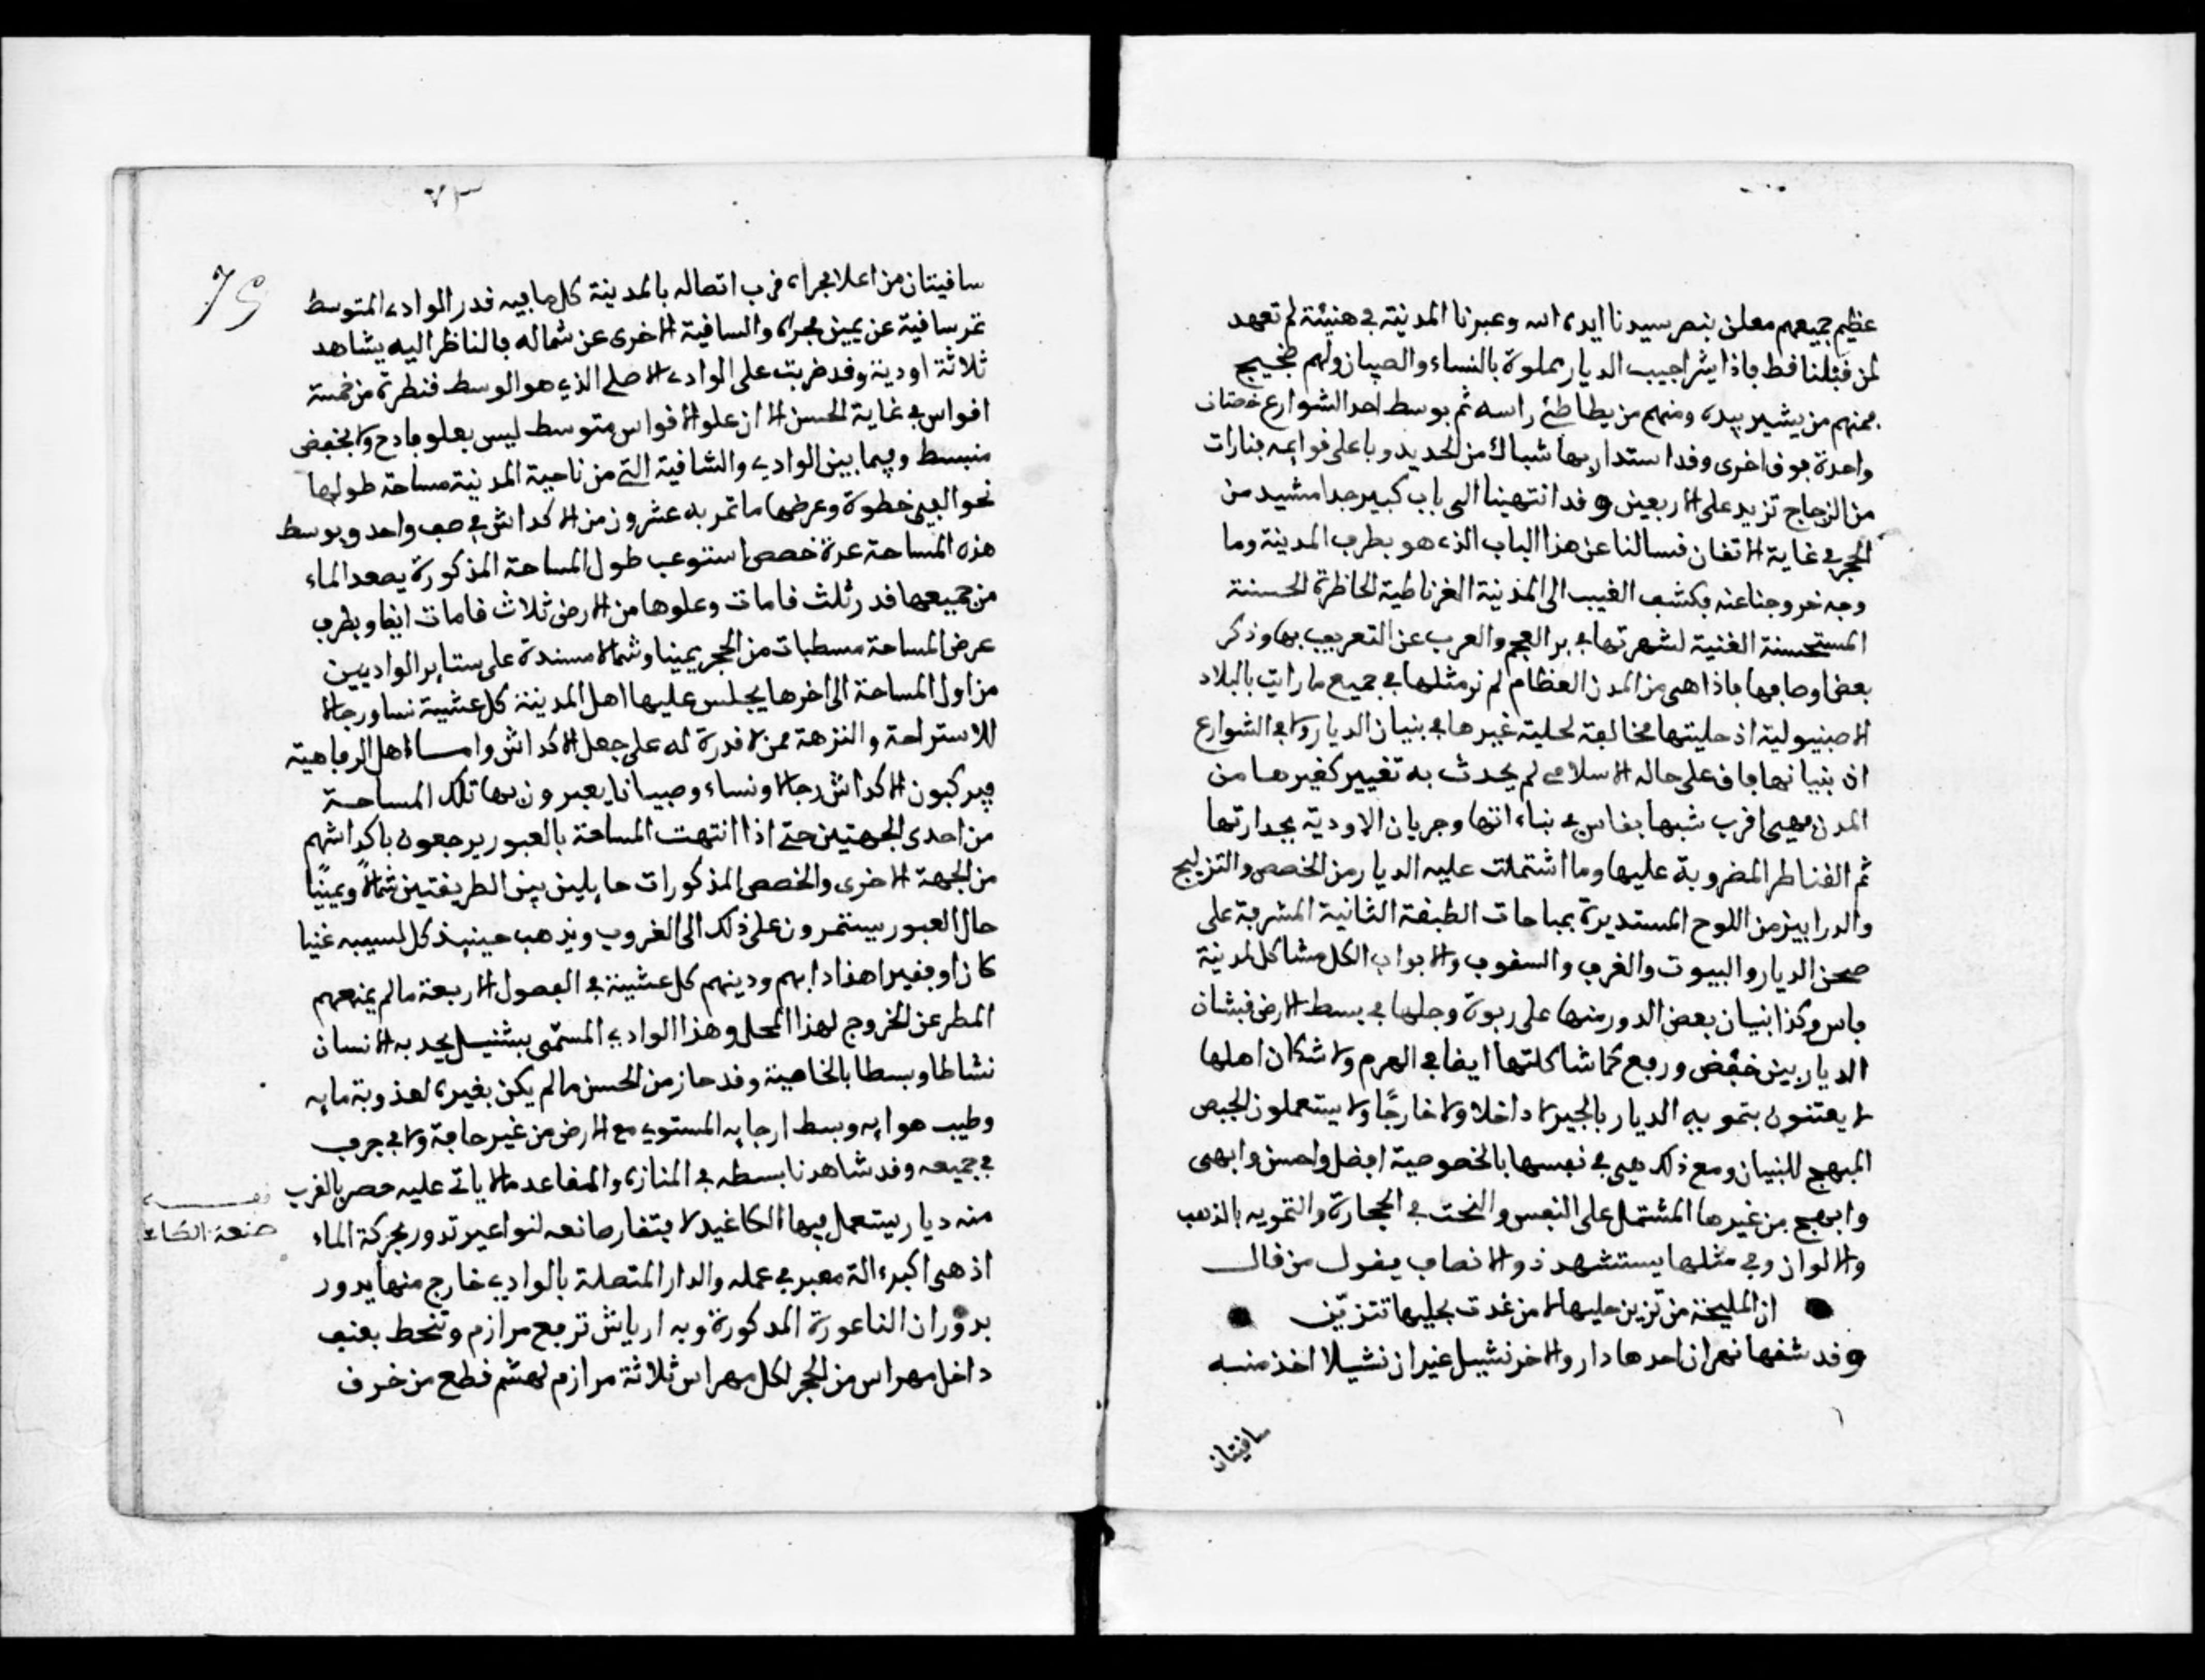 عظيم جميعهم معلن بنصر سيدنا ايده الله وعبرنا المدينة في هنيئة لم تعهد
لمن قبلنا قط فاذا بشراجيب الديار مملوة بالنساء والصبيان ولهم ضجيج
فمنهم من يشير بيده ومنهم من يطاطئ راسه ثم بوسط احد الشوارع خصتان
واحدة فوق اخرى وقد استدار بها شباك من الحديد وباعلى قوايمه فنارات
من الزجاج تزيد على الاربعين وقد انتهينا الى باب كبير جدا مشيد من
الحجر في غاية الاتقان فسالنا عن هذا الباب الذي هو بطرف المدينة وما
وجه خروجنا عنه فكشف الغيب الى المدينة الغرناطية الحاظرة الحسنة
المستحسنة الغنية لشهرتها في بر العجم والعرب عن التعريف بها وذكر
بعض اوصافها فاذا هى من المدن العظام لم نر مثلها في جميع ما رايت بالبلاد
الاصبنيولية اذ حليتها مخالفة لحلية غيرها في بنيان الديار ولا في الشوارع
ان بنيانها باق على حاله الاسلامي لم يحدث به تغيير كغيرها من
المدن فهي اقرب شبها بفاس في بناءاتها وجريان الاودية بجداراتها
ثم القناطر المضروبة عليها وما اشتملت عليه الديار من الخصص والتزليج
والدرابيز من اللوح المستديرة بمباحات الطبقة الثانية المشرفة على
صحن الديار والبيوت والغرف والسقوف والابواب الكل مشاكل لمدينة
فاس وكذا بنيان بعض الدور منها على ربوة وجلها في بسط الارض فبشان
الديار بين خفض ورفع كما شاكلتها ايضا في الهرم ولا شك ان اهلها
لا يعتنون بتمويه الديار بالجير لا داخلا ولا خارجًا ولا يستعملون الجبص
المبهج للبنيان ومع ذلك هي في نفسها بالخصوصية افضل واحسن وابهى
وابهج من غيرها المشتمل على النقس والنحت في الحجارة والتمويه بالذهب
والالوان وفي مثلها يستشهد ذو الانصاف بقول من قال
ان المليحة من تزين حليها لا من غدت بحليها تتزيّن
وقد شقها نهران احدها دارو والاخر نشيل غير ان نشيلا اخذ منه
ساقيتان
٧٣
75
ساقيتان من اعلا مجراه قرب اتصاله بالمدينة كل ما فيه قدر الوادي المتوسط
تمر ساقية عن يمين مجراه والساقية الاخرى عن شماله فالناظر اليه يشاهد
ثلاثة اودية وقد ضربت على الوادي الاصلي الذي هو الوسط قنطرة من خمسة
اقواس في غاية الحسن الا ان علو الاقواس متوسط ليس بعلو فادح ولا بخفض
منبسط وفيما بين الوادي والساقية التي من ناحية المدينة مساحة طولها
نحو الفي خطوة وعرضها ما تمر به عشرون من الاكداش في صف واحد وبوسط
هذه المساحة عدة خصص استوعب طول المساحة المذكورة يصعد الماء
من جميعها قدر ثلث قامات وعلوها من الارض ثلاث قامات ايضا وبطرف
عرض المساحة مسطبات من الحجر يمينا وشمالا مسندة على ستاير الواديين
من اول المساحة الى اخرها يجلس عليها اهل المدينة كل عشية نسا ورجالا
للاستراحة والنزهة ممن لا قدرة له على جعل الاكداش واما اهل الرفاهية
فيركبون الاكداش رجالا ونساء وصبيانا يعبرون بها تلك المساحة
من احدى الجهتين حتى اذا انتهت المساحة بالعبور يرجعون باكداشهم
من الجهة الاخرى والخصص المذكورات حايلين بين الطريقتين شمالاً ويمينًا
حال العبور يستمرون على ذلك الى الغروب ويذهب حينيذ كل لسبيله غنيا
كان او فقيرا هذا دابهم ودينهم كل عشية في الفصول الاربعة ما لم يمنعهم
المطر عن الخروج لهذا المحل وهذا الوادي المسمّى بشنيل يجد به الانسان
نشاطا وبسطا بالخاصية وقد حاز من الحسن ما لم يكن بغيره لعذوبة مايه
وطيب هوايه وبسط ارجايه المستوي مع الارض من غير حافة ولا في جرف
في جميعه وقد شاهدنا بسطه في المنازه والمقاعد ما لا ياتي عليه حصر بالقرب
منه ديار يستعمل فيها الكاغيد لافتقار صانعه لنواعير تدور بحركة الماء
اذ هى اكبر الة معبر في عمله والدار المتصلة بالوادي خارج منها يدور
بدوران الناعورة المذكورة وبه ارياش ترفع مرازم وتنحط بعنف
داخل مهراس من الحجر لكل مهراس ثلاثة مرازم لهشم قطع من خرق
صنعة الكاغد